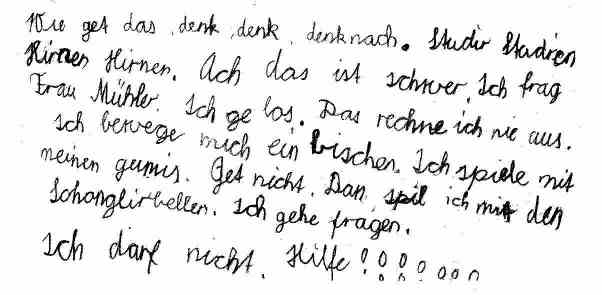 Wie get das denk, denk, denknach. Studir Studiren
Hirnen Hirnen. Ach das ist schwer. Ich frag
Frau Mühler. Ich ge los. Das rechne ich nie aus.
Ich bewege mich ein bischen. Ich spiele mit
meinen gumis. Get nicht. Dan spil ich mit den
Schonglirbellen. Ich gehe fragen.
Ich darf nicht. Hilfe!!!!!!!